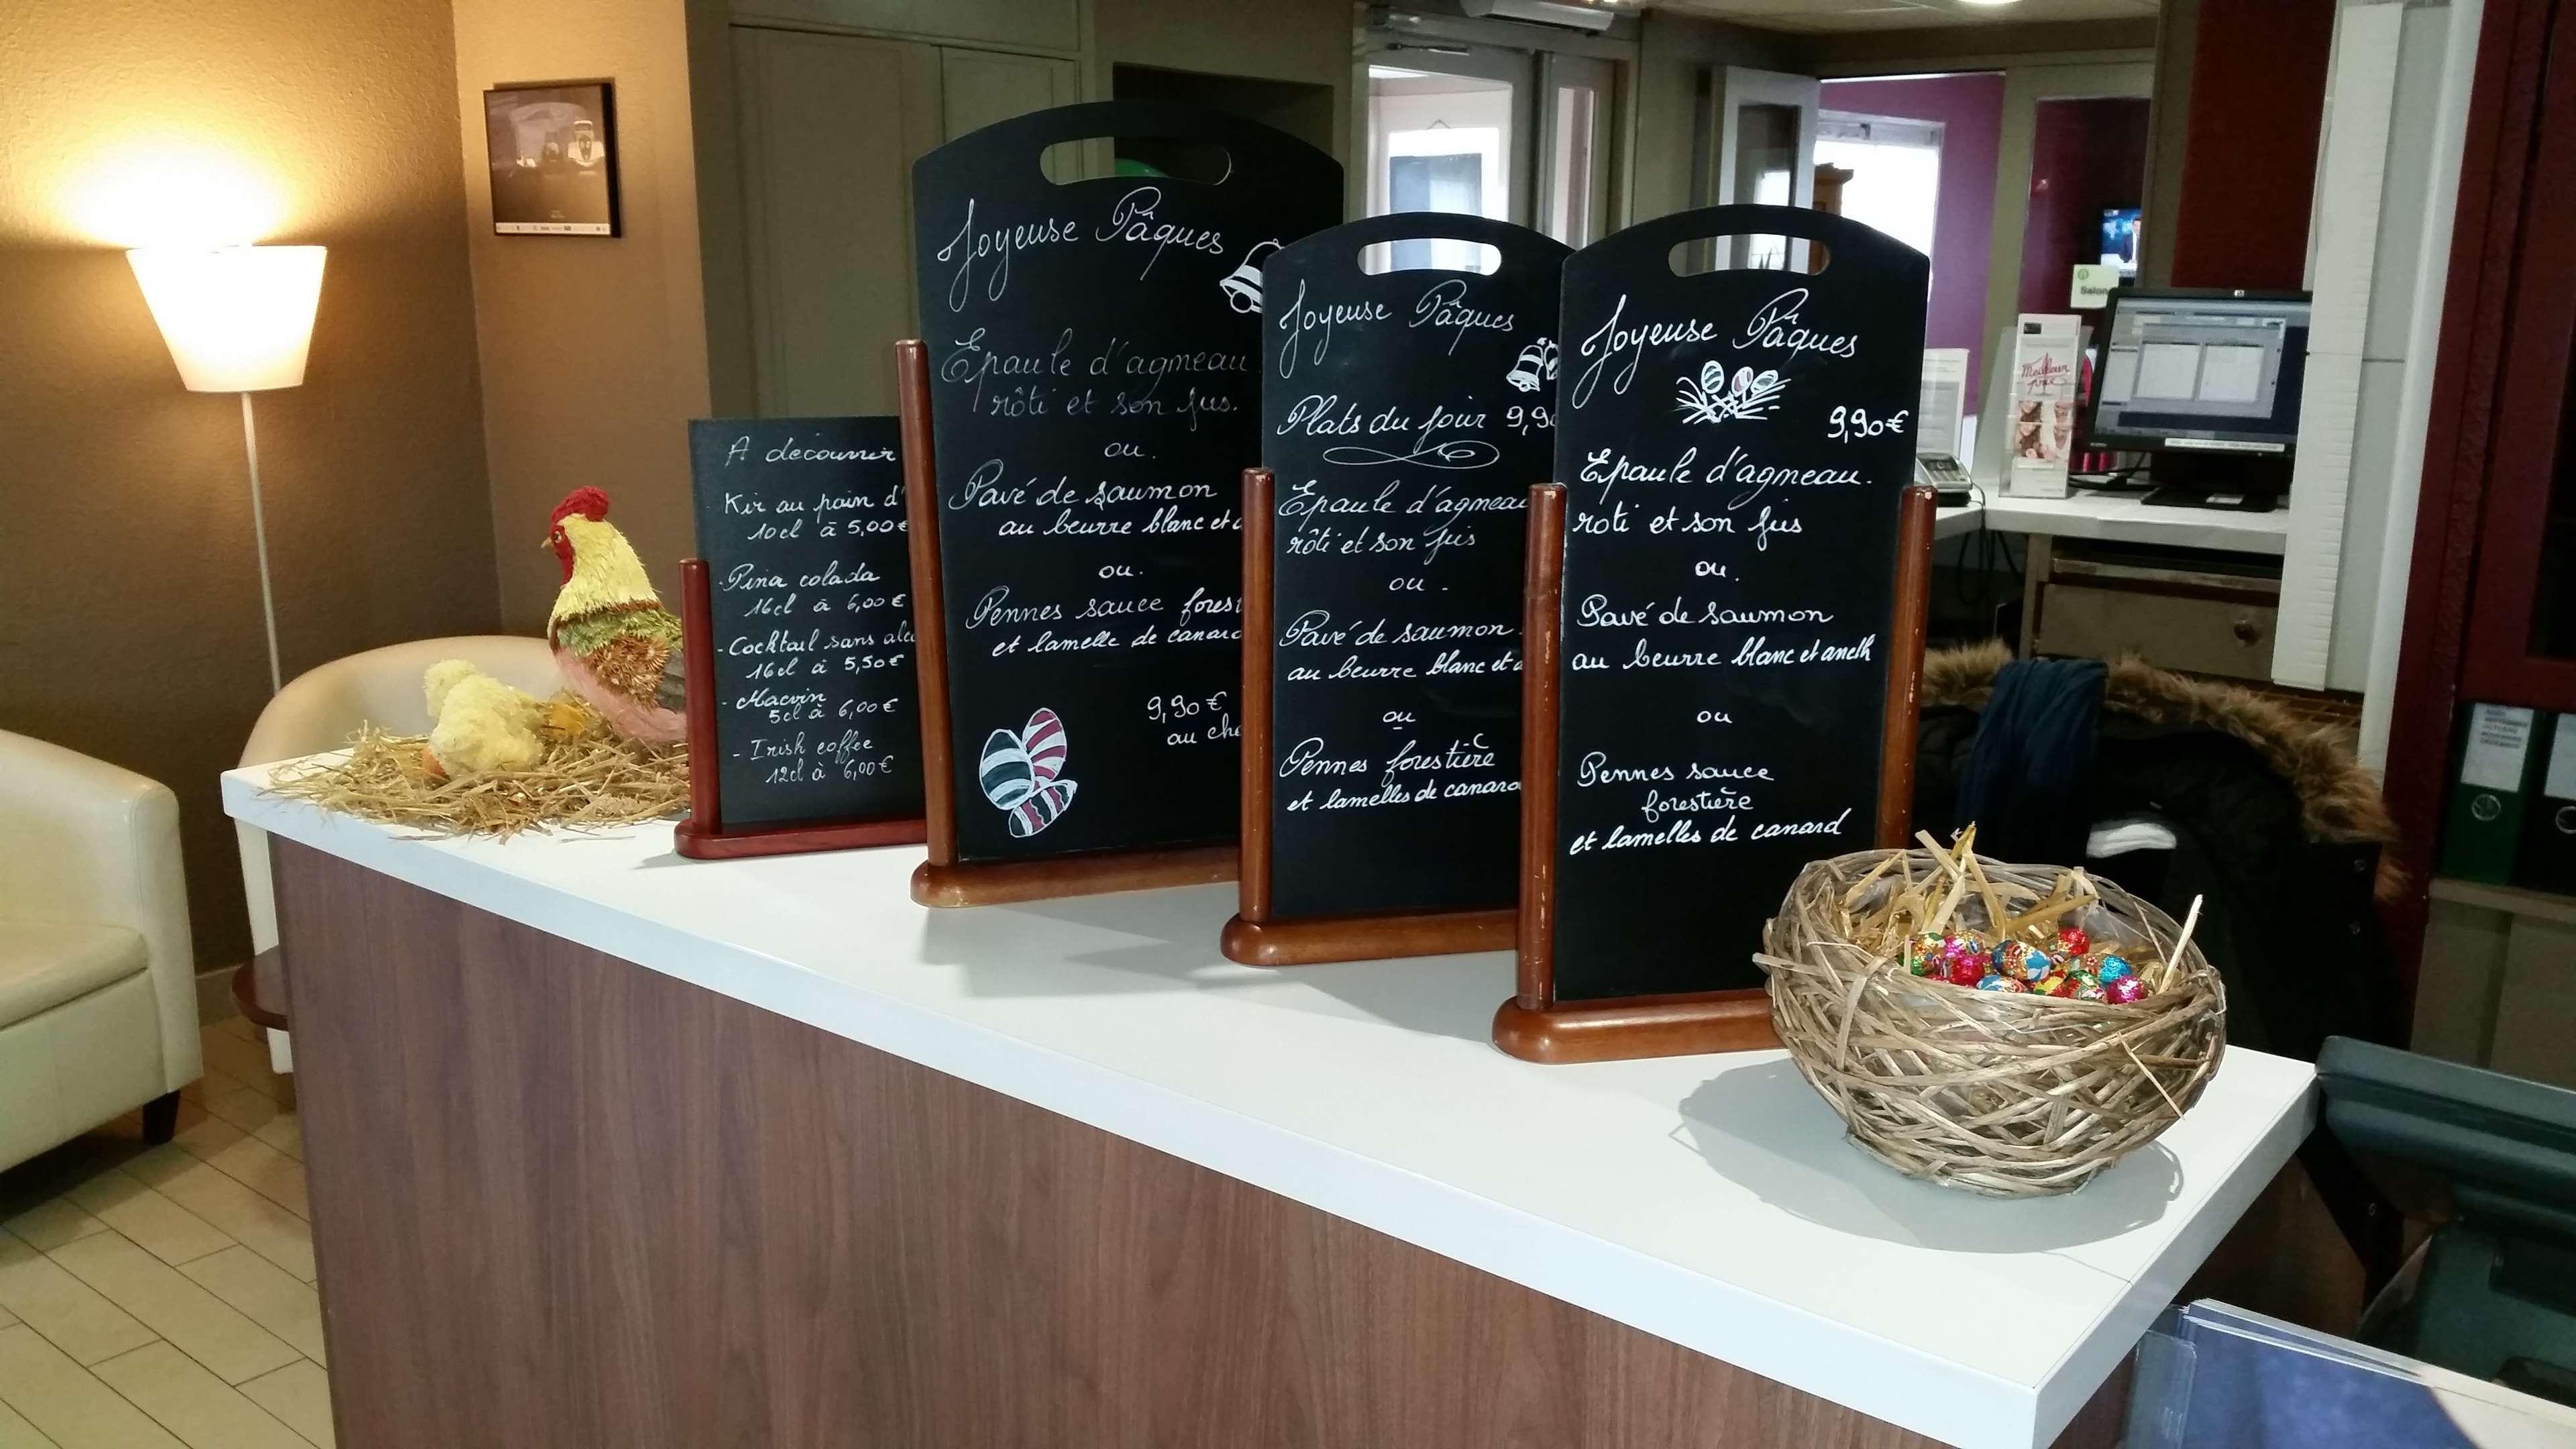 A découvrir
Kir au pain d'
10cl à 5,00€
- Pina colada
16cl à 6,00€
- Cocktail sans alco
16cl à 5,50€
- Macvin
5cl à 6,00€
- Irish coffee
12cl à 6,00€
Joyeuse Pâques
Epaule d'agneau
rôti et son jus.
ou.
Pavé de saumon
au beurre blanc et a
ou.
Pennes sauce forest
et lamelle de canard
9,90€
au cho
Joyeuse Pâques
Plats du jour 9,90
Epaule d'agneau
rôti et son jus
ou.
Pavé de saumon
au beurre blanc et a
ou
Pennes forestière
et lamelles de canard
Joyeuse Pâques
9,90€
Epaule d'agneau.
roti et son jus
ou.
Pavé de saumon
au beurre blanc et aneth
ou
Pennes sauce
forestière
et lamelles de canard
Salon
Meilleur
prix